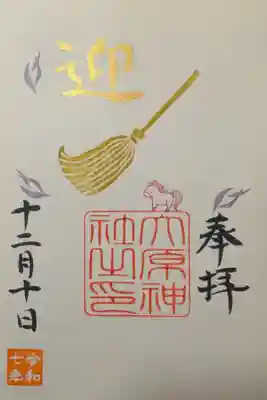 迎
奉拝
大原神社之印
十二月十日
令和七年